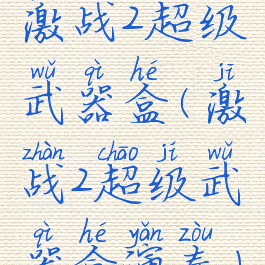 激战2超级
wǔ qì hé jī
武器盒(激
zhàn chāo jí wǔ
战2超级武
qì hé yǎn zòu
器盒演奏)